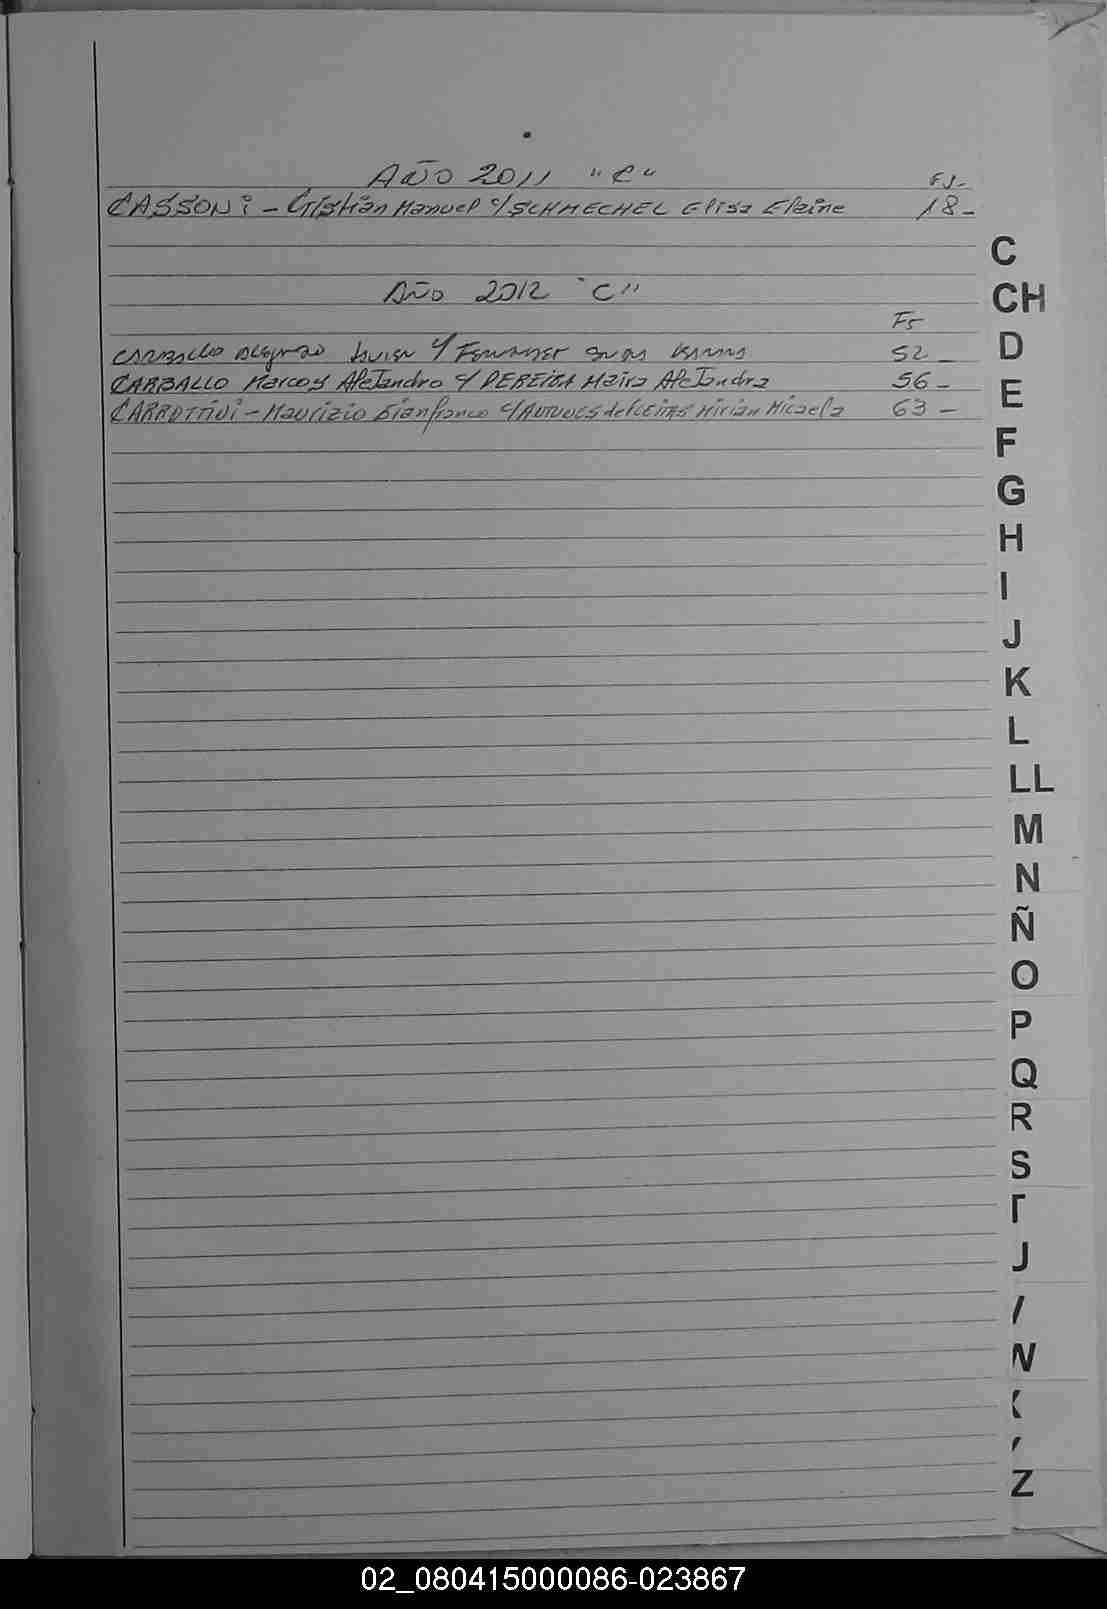 AÑO 2011 "C" FS-
CASSONi - Cristian Manuel c/ SCHMECHEL Elisa Elaine 18-
AÑO 2012 "C"
Fs
CARBALLO Javier c/ 52-
CARBALLO Marcos Alejandro c/ PEREIRA Maira Alejandra 56-
CARROTTiNi - Maurizio Gianfranco c/ ANTUNES de FLEITAS Mirian Micaela 63-
C
CH
D
E
F
G
H
I
J
K
L
LL
M
N
Ñ
O
P
Q
R
S
Z
02_080415000086-023867